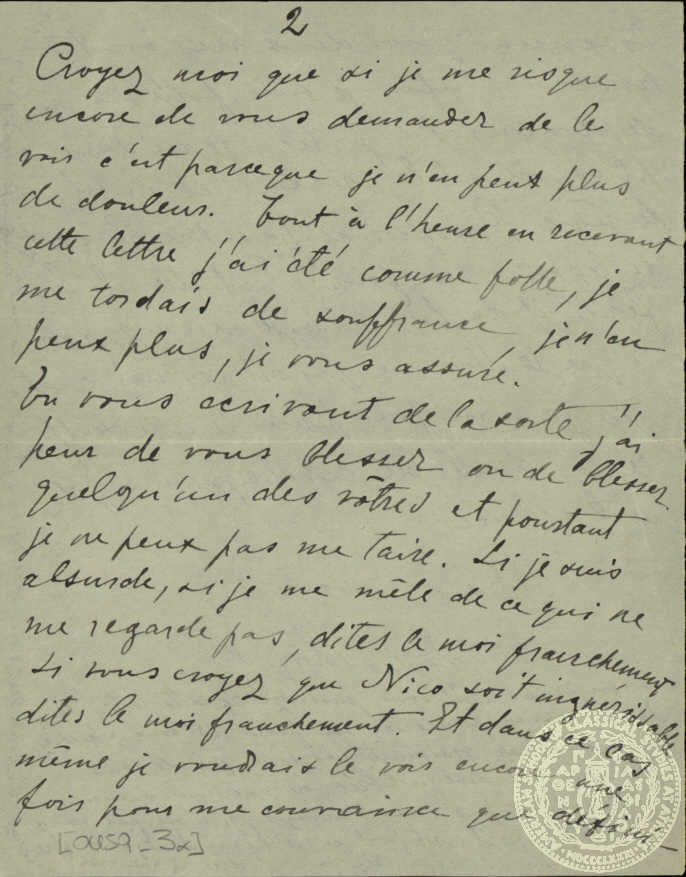 2
Croyez moi que si je me risque
encore de vous demander de le
voir c'est parceque je n'en peux plus
de douleur. Tout à l'heure en recevant
cette lettre j'ai été comme folle, je
me tordais de souffrance, je n'en
peux plus, je vous assure.
En vous écrivant de la sorte j'ai
peur de vous blesser ou de blesser
quelqu'un des vôtres et pourtant
je ne peux pas me taire. Si je suis
absurde, si je me mêle de ce qui ne
me regarde pas, dites le moi franchement
Si vous croyez que Nico soit inguérissable
dites le moi franchement. Et dans ce cas
même je voudrais le voir encore une
fois pour me convaincre que défini-